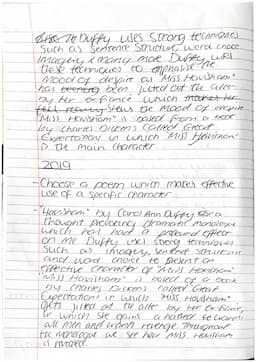 Duffy uses strong techniques
such as sentence structure, word choice
imagery & many more. Duffy uses
these techniques to emphasise the
mood of despise as "Miss Havisham"
has been jilted at the alter
by her ex-fiance which
shows the mood of despise
"Miss Havisham" is based from a book
by Charles Dickens called Great
Expectations in which Miss Havisham"
is the main character.
2019
- Choose a poem which makes effective
use of a specific character
- "Havisham" by Carol Ann Duffy is a
thought provoking dramatic monologue
which has had a profound effect
on me. Duffy uses strong techniques
such as imagery, sentence structure
and word choice to present an
effective character of "Miss Havisham"
"Miss Havisham" is based of a book
by Charles Dickens called Great
Expectations in which "Miss Havisham"
gets jilted at the alter by her ex fiance,
in which she gains a hatred towards
all men and wants revenge throughout
the monologue we see how Miss Havisham
is